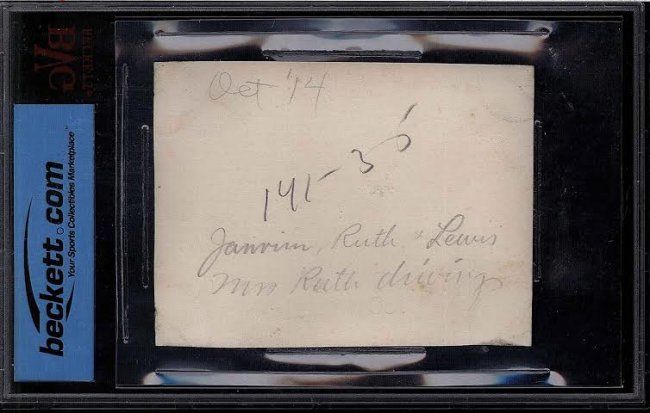 Oct '14
141-35
Janvrin, Ruth & Lewis
Mrs Ruth driving
BECKETT
BVG
beckett.com
Your Sports Collectibles Marketplace™